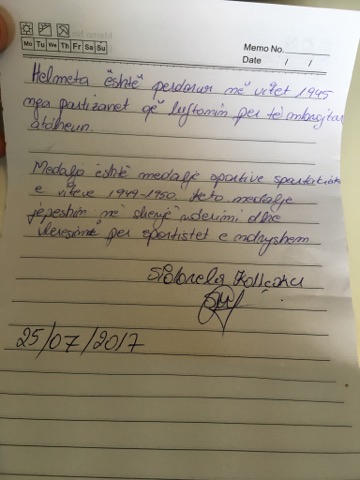 Memo No.
Mo Tu We Th Fr Sa Su
Date / /
Helmeta është perdorur në vitet 1945
nga partizanet që luftonin per të mbrojtur
atdheun.
Medalja është medalje sportive spartakiada
e viteve 1949-1950. Keto medalje
jepeshin në shenjë nderimi dhe
vleresimi per sportistet e ndryshem
25/07/2017